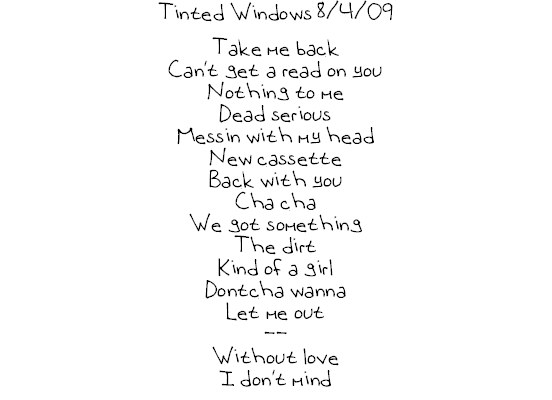 Tinted Windows 8/4/09
Take me back
Can't get a read on you
Nothing to me
Dead serious
Messin with my head
New cassette
Back with you
Cha cha
We got something
The dirt
Kind of a girl
Dontcha wanna
Let me out
--
Without love
I don't mind